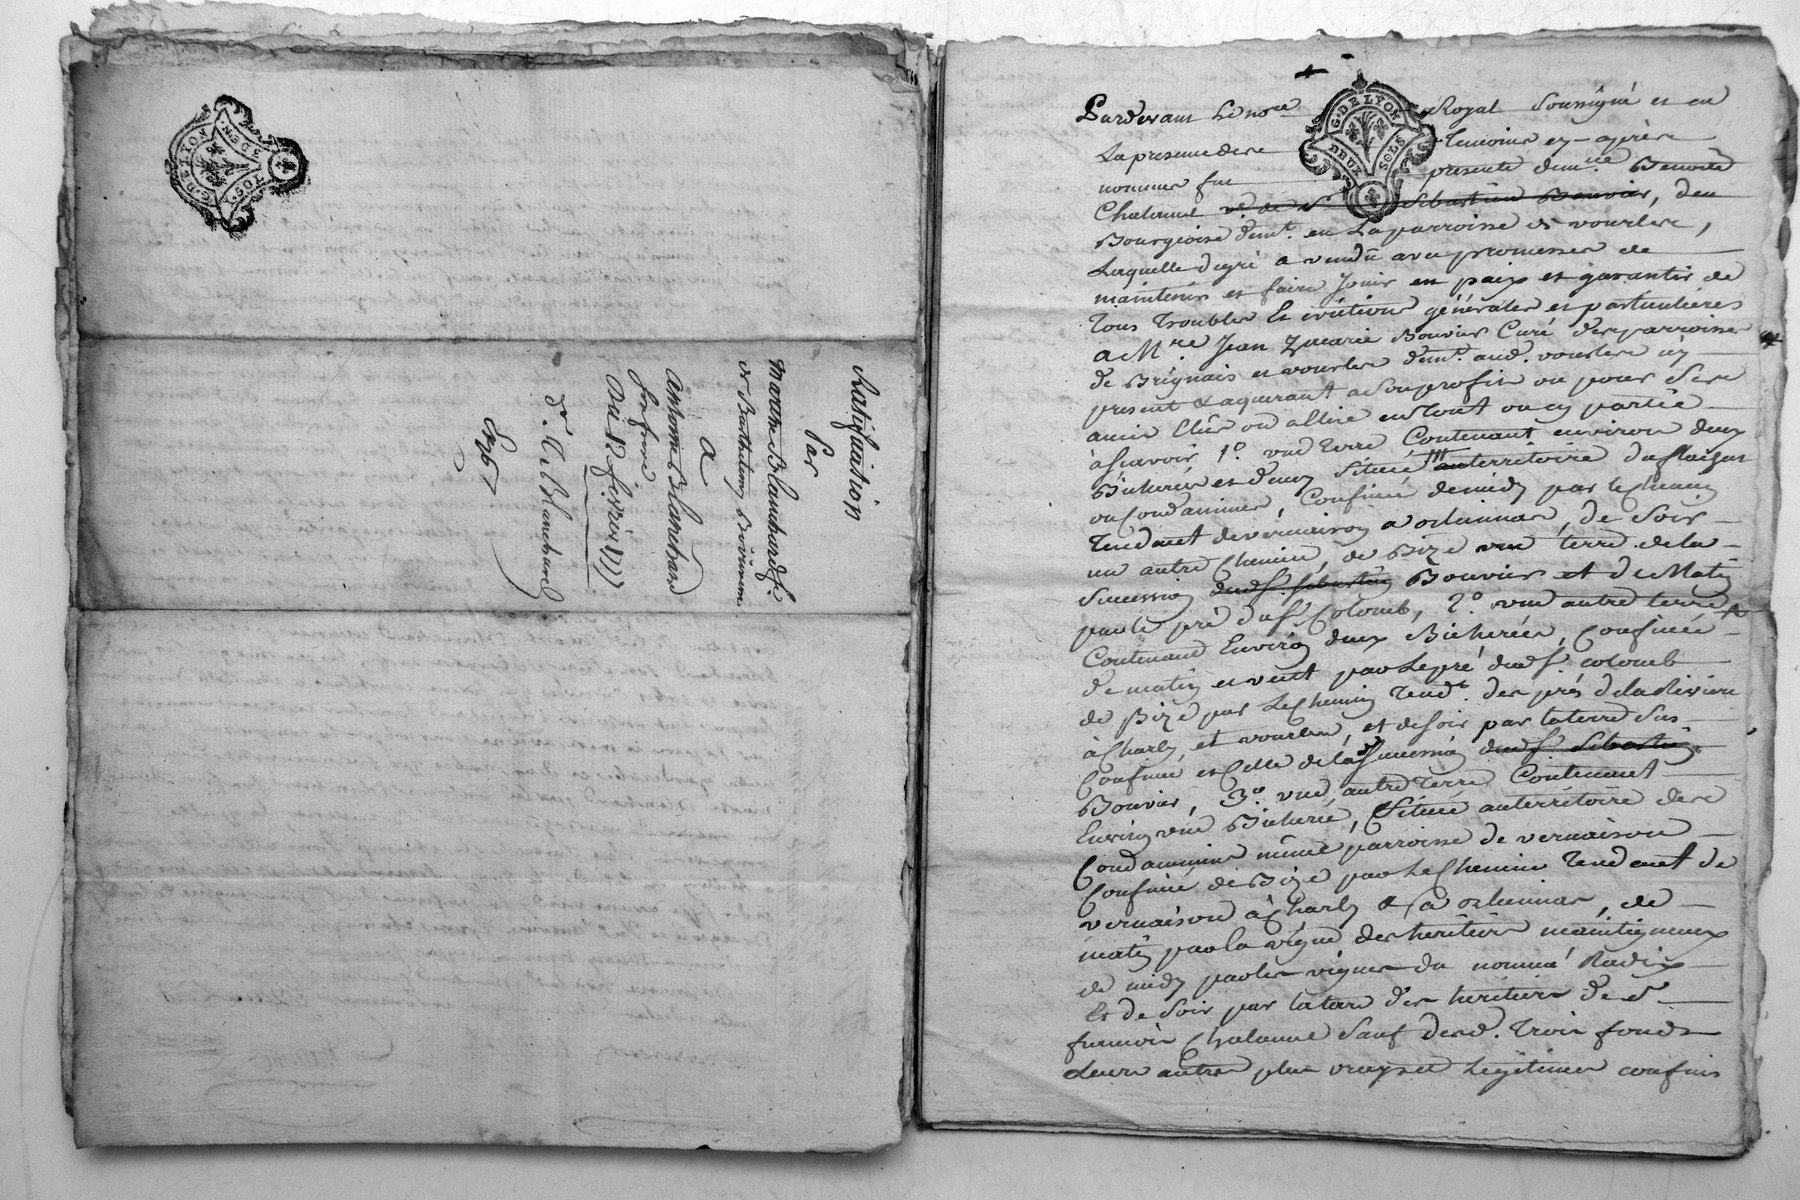 G. DE LYON
DEUX SOLS
Ratification
Par
Blanchard f.e
a
Antoine Blanchard
Son frere
Du 12 fevrier 1777
Exp.
G. DE LYON
DEUX SOLS
Pardevant Le no.re Royal Soussigné et en
La presence des Temoins cy-après
nommés fut presente dem.lle Benoite
Chalanne v.e de S. Sebastien Bouvier,
Bourgeoise dem.t en La parroisse de vourles,
Laquelle de gré a vendu avec promesse de
maintenir et faire Jouir en paix et garantir de
Tous Troubles Et évictions générales et particulières
a M.re Jean Zacarie Bouvier Curé des parroisses
de Brignais et vourles dem.t aud. vourles icy
present & aquerant a Son profit ou pour Ses
amis Elûs ou a Elire en Tout ou en partie
à Scavoir 1.o une Terre Contenant environ deux
Bicherées et demy Située au territoire
ou Condamines, Confinée de midy par le Chemin
Tendant de vernaison a orliennas, de Soir
un autre Chemin, de Bize une terre de la
Succession dud. S. Sebastien Bouvier et de Matin
par le pré du S. Colomb, 2.o une autre terre
Contenant Environ deux Bicherées, Confinée
de matin et vent par Le pré dud. S. Colomb
de Bize par Le Chemin Tend.t des prés de la Riviere
à Charly et vourles, et de Soir par la terre Sus
Confinée et Celle de la Succession dud. S. Sebastien
Bouvier, 3.o une autre Terre Contenant
Environ une Bicherée, Située au territoire des
Condamines même parroisse de vernaison
Confinée de Bize par Le Chemin Tendant de
vernaison à Charly & a orliennas, de
matin par la vigne des heritiers
de midy par les vignes du nommé Radix
Et de Soir par la terre des heritiers de S.
Chalanne Sauf desd. Trois fonds
Leurs autres plus vrays et Legitimes confins